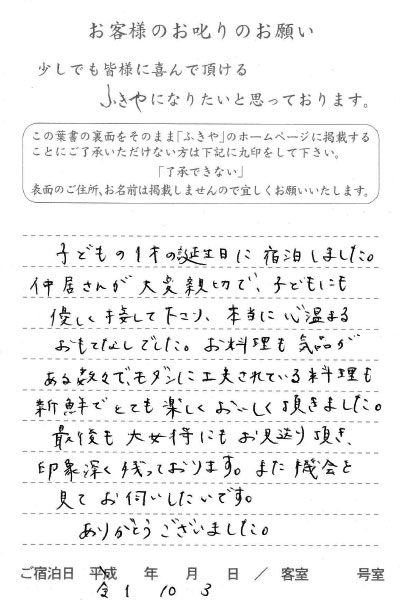 お客様のお叱りのお願い
少しでも皆様に喜んで頂ける
ふきやになりたいと思っております。
この葉書の裏面をそのまま「ふきや」のホームページに掲載する
ことにご了承いただけない方は下記に丸印をして下さい。
「了承できない」
表面のご住所、お名前は掲載しませんので宜しくお願いいたします。
子どもの1才の誕生日に宿泊しました。
仲居さんが大変親切で、子どもにも
優しく接して下さり、本当に心温まる
おもてなしでした。お料理も気品が
ある数々で、モダンに工夫されている料理も
新鮮でとても楽しくおいしく頂きました。
最後も大女将にもお見送り頂き、
印象深く残っております。また機会を
見てお伺いしたいです。
ありがとうございました。
ご宿泊日 平成 年 月 日 / 客室 号室
令 1 10 3